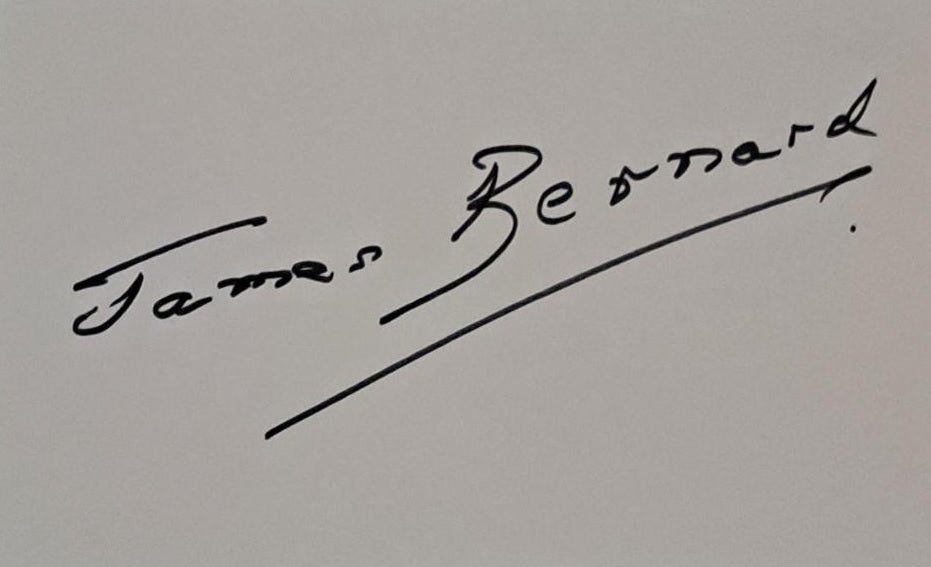 James Bernard